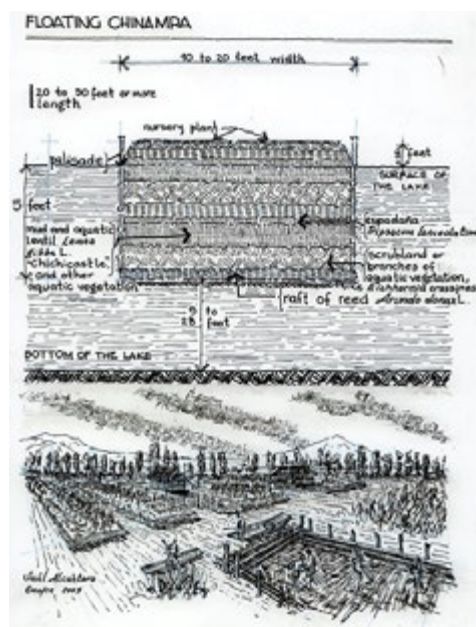 FLOATING CHINAMPA
10 to 20 feet width
20 to 90 feet or more
length
nursery plant
palisade
feet
SURFACE OF
THE LAKE
5
feet
Mud and aquatic
lentil Lemna
gibba L.
"Chichicastle"
and other
aquatic vegetation
scrubland or
branches of
aquatic vegetation,
Eichhornia crassipes
raft of reed Arundo donax L.
to
feet
BOTTOM OF THE LAKE